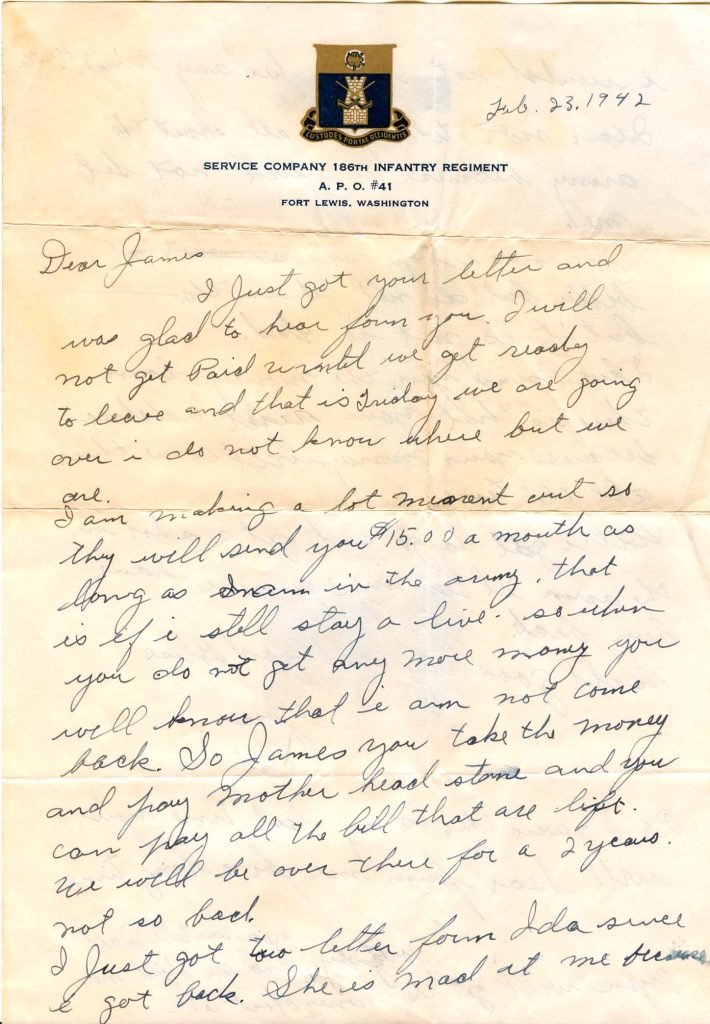 CUSTODES PORTAE OCCIDENTIS
Feb. 23, 1942
SERVICE COMPANY 186TH INFANTRY REGIMENT
A. P. O. #41
FORT LEWIS, WASHINGTON
Dear James
I Just got your letter and
was glad to hear form you. I will
not get Paid until we get ready
to leave and that is Friday we are going
over i do not know where but we
are.
I am making a lot out so
they will send you $15.00 a mouth as
long as in the army. that
is if i still stay a live. so when
you do not get any more money you
well know that i am not come
back. So James you take the money
and pay mother head stone and you
can pay all the bill that are lift.
We will be over there for a 2 years.
not so bad.
I Just got two letter form Ida since
i got back. She is mad at me because